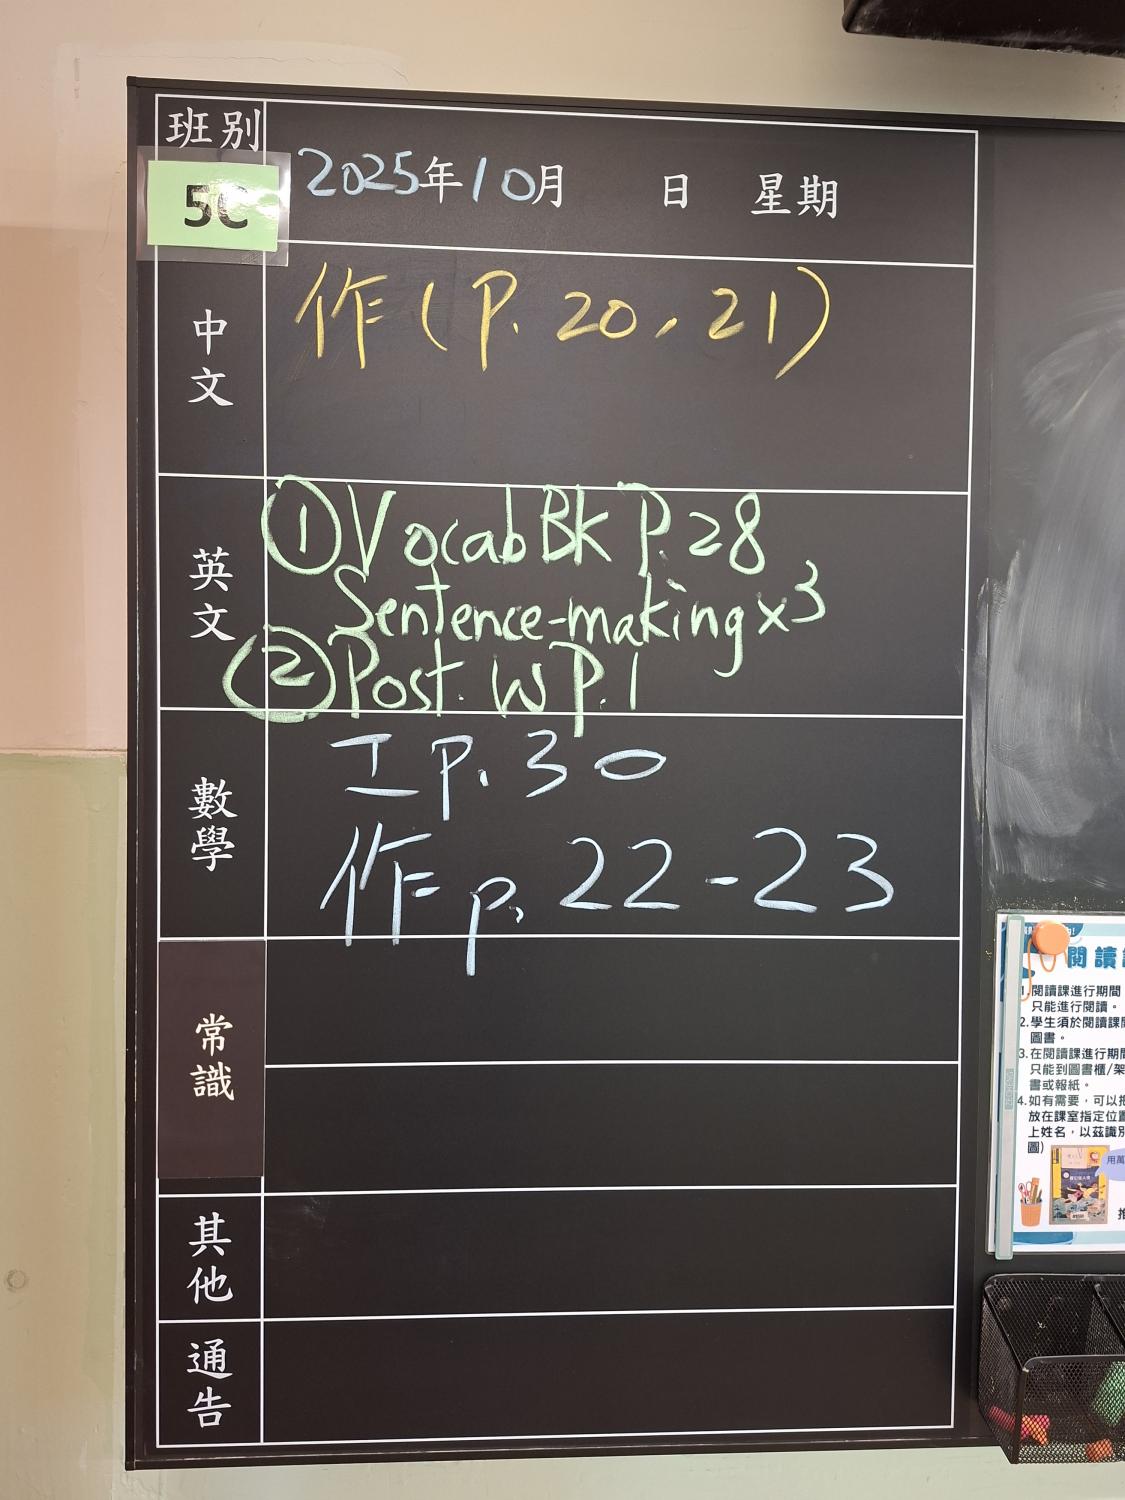 班別
5C
2025年10月 日 星期
中文
作(P. 20, 21)
英文
① Vocab BK P.28
Sentence-making x3
② Post. W P.1
數學
工 P. 30
作 p. 22-23
常識
其他
通告
閱讀
1.閱讀課進行期間
只能進行閱讀。
2.學生須於閱讀課
圖書。
3.在閱讀課進行期間
只能到圖書櫃/架
書或報紙。
4.如有需要,可以
放在課室指定位置
上姓名,以茲識別
圖)
用萬